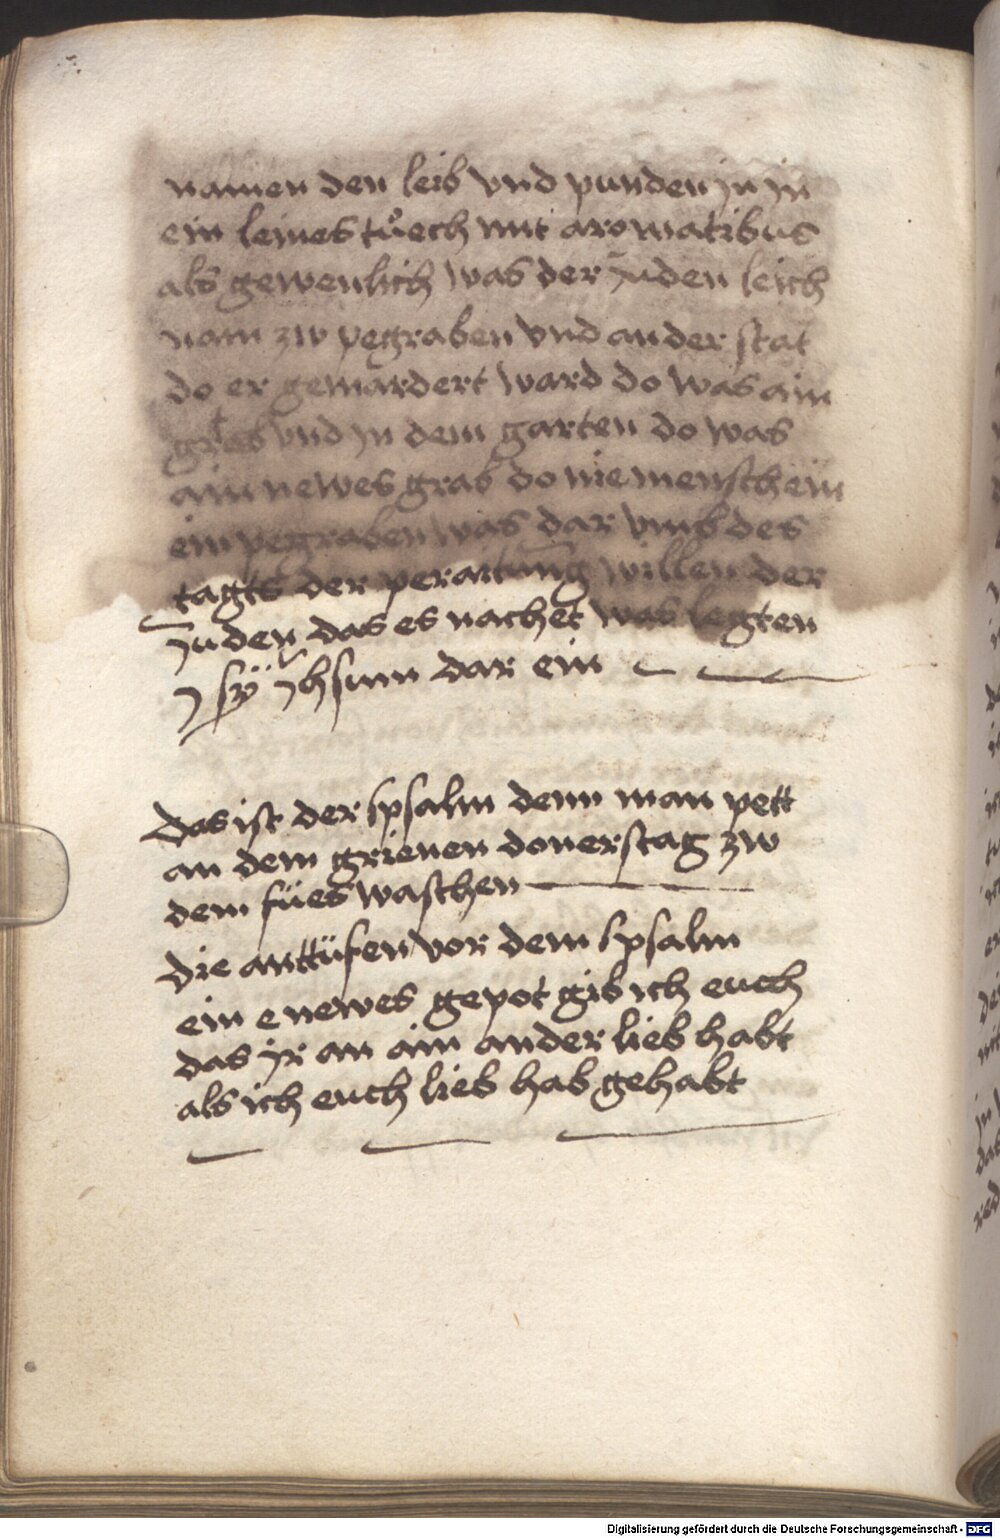 namen den leib vnd punden jn jn
ein leines tuͦech mit aromatibus
als gewenlich was der juden leich
nam zw pegraben vnd an der stat
do er gemardert ward do was ain
vnd jn dem garten do was
ain newes grab do nie mensch ein
ein pegraben was dar vmb des
tagts der peraitung willen der
juden das es nachet was legten
sy jhsum dar ein
Das ist der spsalm denn man pett
an dem grienen donerstag zw
dem füeswaschen
die anttüfen vor dem spsalm
ein e newes gepot gib ich euch
das jr an ain ander lieb habt
als ich euch lieb hab gehabt
Digitalisierung gefördert durch die Deutsche Forschungsgemeinschaft - DFG